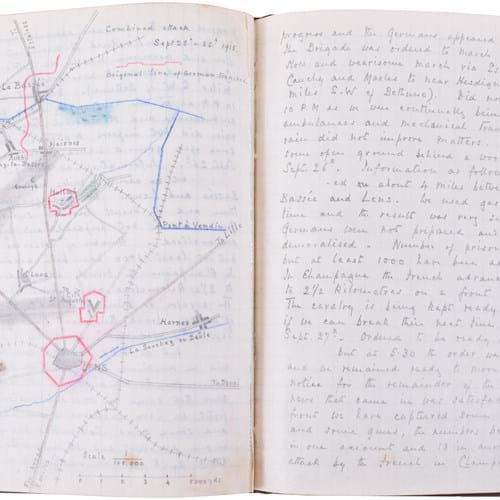 Combined attack
Sept 25th - 26th 1915.
Original line of German trenches
La Bassée
Haisnes
Hulluch
Pont à Vendin
To Lille
Loos
Harnes
La Souchez ou Deule
To Douai
Scale 1
100,000
progress and the Germans appeared
The Brigade was ordered to march
Slow and wearisome march via
Cauchy and Marles to near Hesdigne
miles S.W of Bethune). Did no
10 P.M as we were continually bein
ambulances and mechanical tran
rain did not improve matters.
some open ground behind a wo
Sept. 26th. Information as follow
-ed on about 4 miles betwe
Bassée and Lens. We used ga
time and the result was very s
Germans were not prepared an
demoralised. Number of prison
but at least 1000 have been
In Champagne the French advan
to 2½ kilometres on a front
The cavalry is being kept ready
if we can break their next line
Sept. 27th. Ordered to be ready
but at 5-30 the order wa
and we remained ready to move
notice for the remainder of the
news that came in was satisfac
front we have captured some
and some guns, the number be
in one account and 13 in ano
attack by the French in Cham